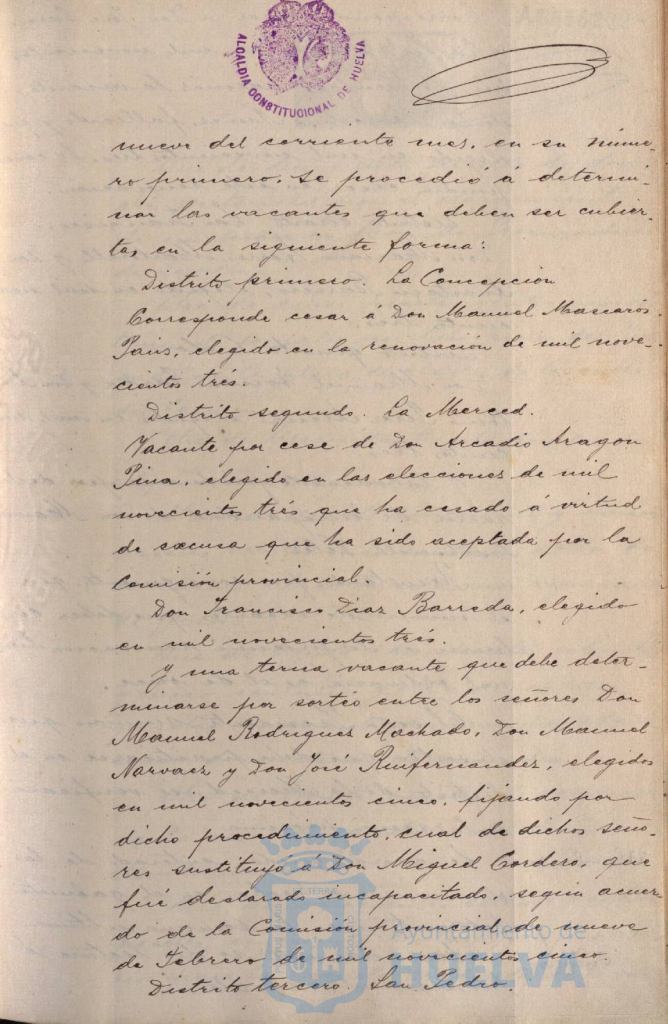 ALCALDIA CONSTITUCIONAL DE HUELVA
nueve del corriente mes, en su núme-
ro primero, se procedió á determi-
nar las vacantes que deben ser cubier-
tas en la siguiente forma:
Distrito primero. La Concepcion
Corresponde cesar á Don Manuel Mascarós
Pais, elegido en la renovación de mil nove-
cientos trés.
Distrito segundo. La Merced.
Vacante por cese de Don Arcadio Aragon
Pina, elegido en las elecciones de mil
novecientos trés que ha cesado á virtud
de excusa que ha sido aceptada por la
Comisión provincial.
Don Francisco Diaz Barreda, elegido
en mil novecientos trés.
Y una terna vacante que debe deter-
minarse por sortéo entre los señores Don
Manuel Rodriguez Machado, Don Manuel
Narvaez y Don José Ruifernandez, elegidos
en mil novecientos cinco, fijando por
dicho procedimiento, cual de dichos seño-
res sustituyó á Don Miguel Cordero, que
fué declarado incapacitado, segun acuer-
do de la Comisión provincial de nueve
de Febrero de mil novecientos cinco.
Distrito tercero. San Pedro.
Ayuntamiento de
HUELVA